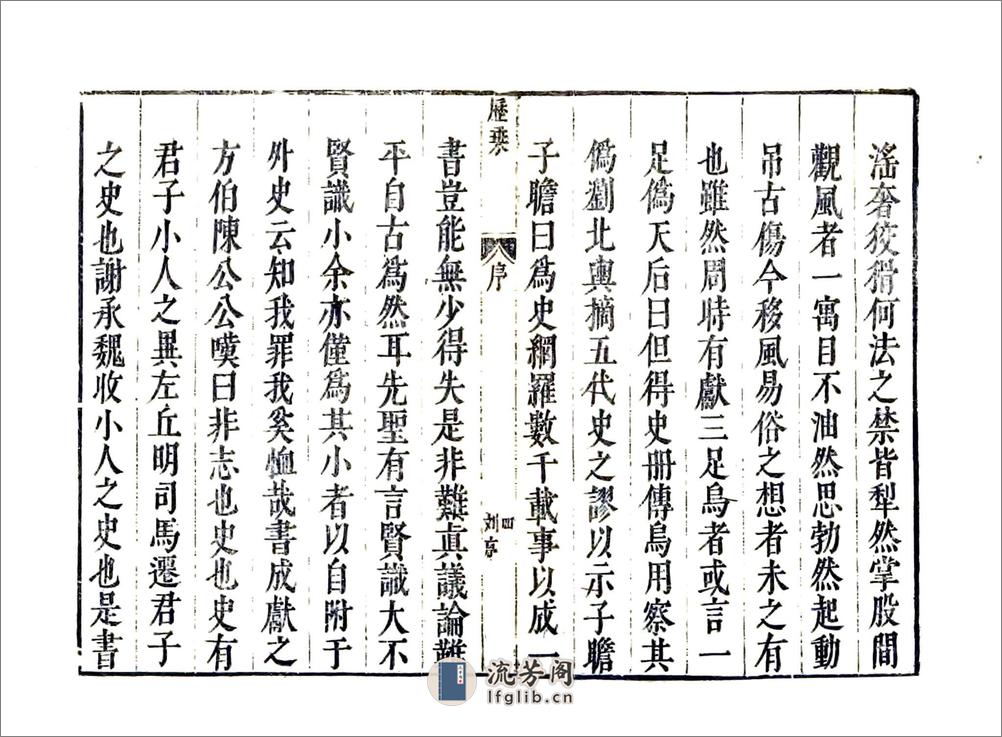 滛奢狡猾何法之禁皆犁然掌股間
觀風者一寓目不油然思勃然起動
吊古傷今移風易俗之想者未之有
也雖然周時有獻三足烏者或言一
足僞天后曰但得史册傳烏用察其
僞劉北輿摘五代史之謬以示子瞻
子瞻曰爲史網羅數千載事以成一
歷乘
序
四
刘亨
書豈能無少得失是非難眞議論難
平自古爲然耳先聖有言賢識大不
賢識小余亦僅爲其小者以自附于
外史云知我罪我奚恤哉書成獻之
方伯陳公公嘆曰非志也史也史有
君子小人之異左丘明司馬遷君子
之史也謝承魏收小人之史也是書
流芳阁
lfglib.cn